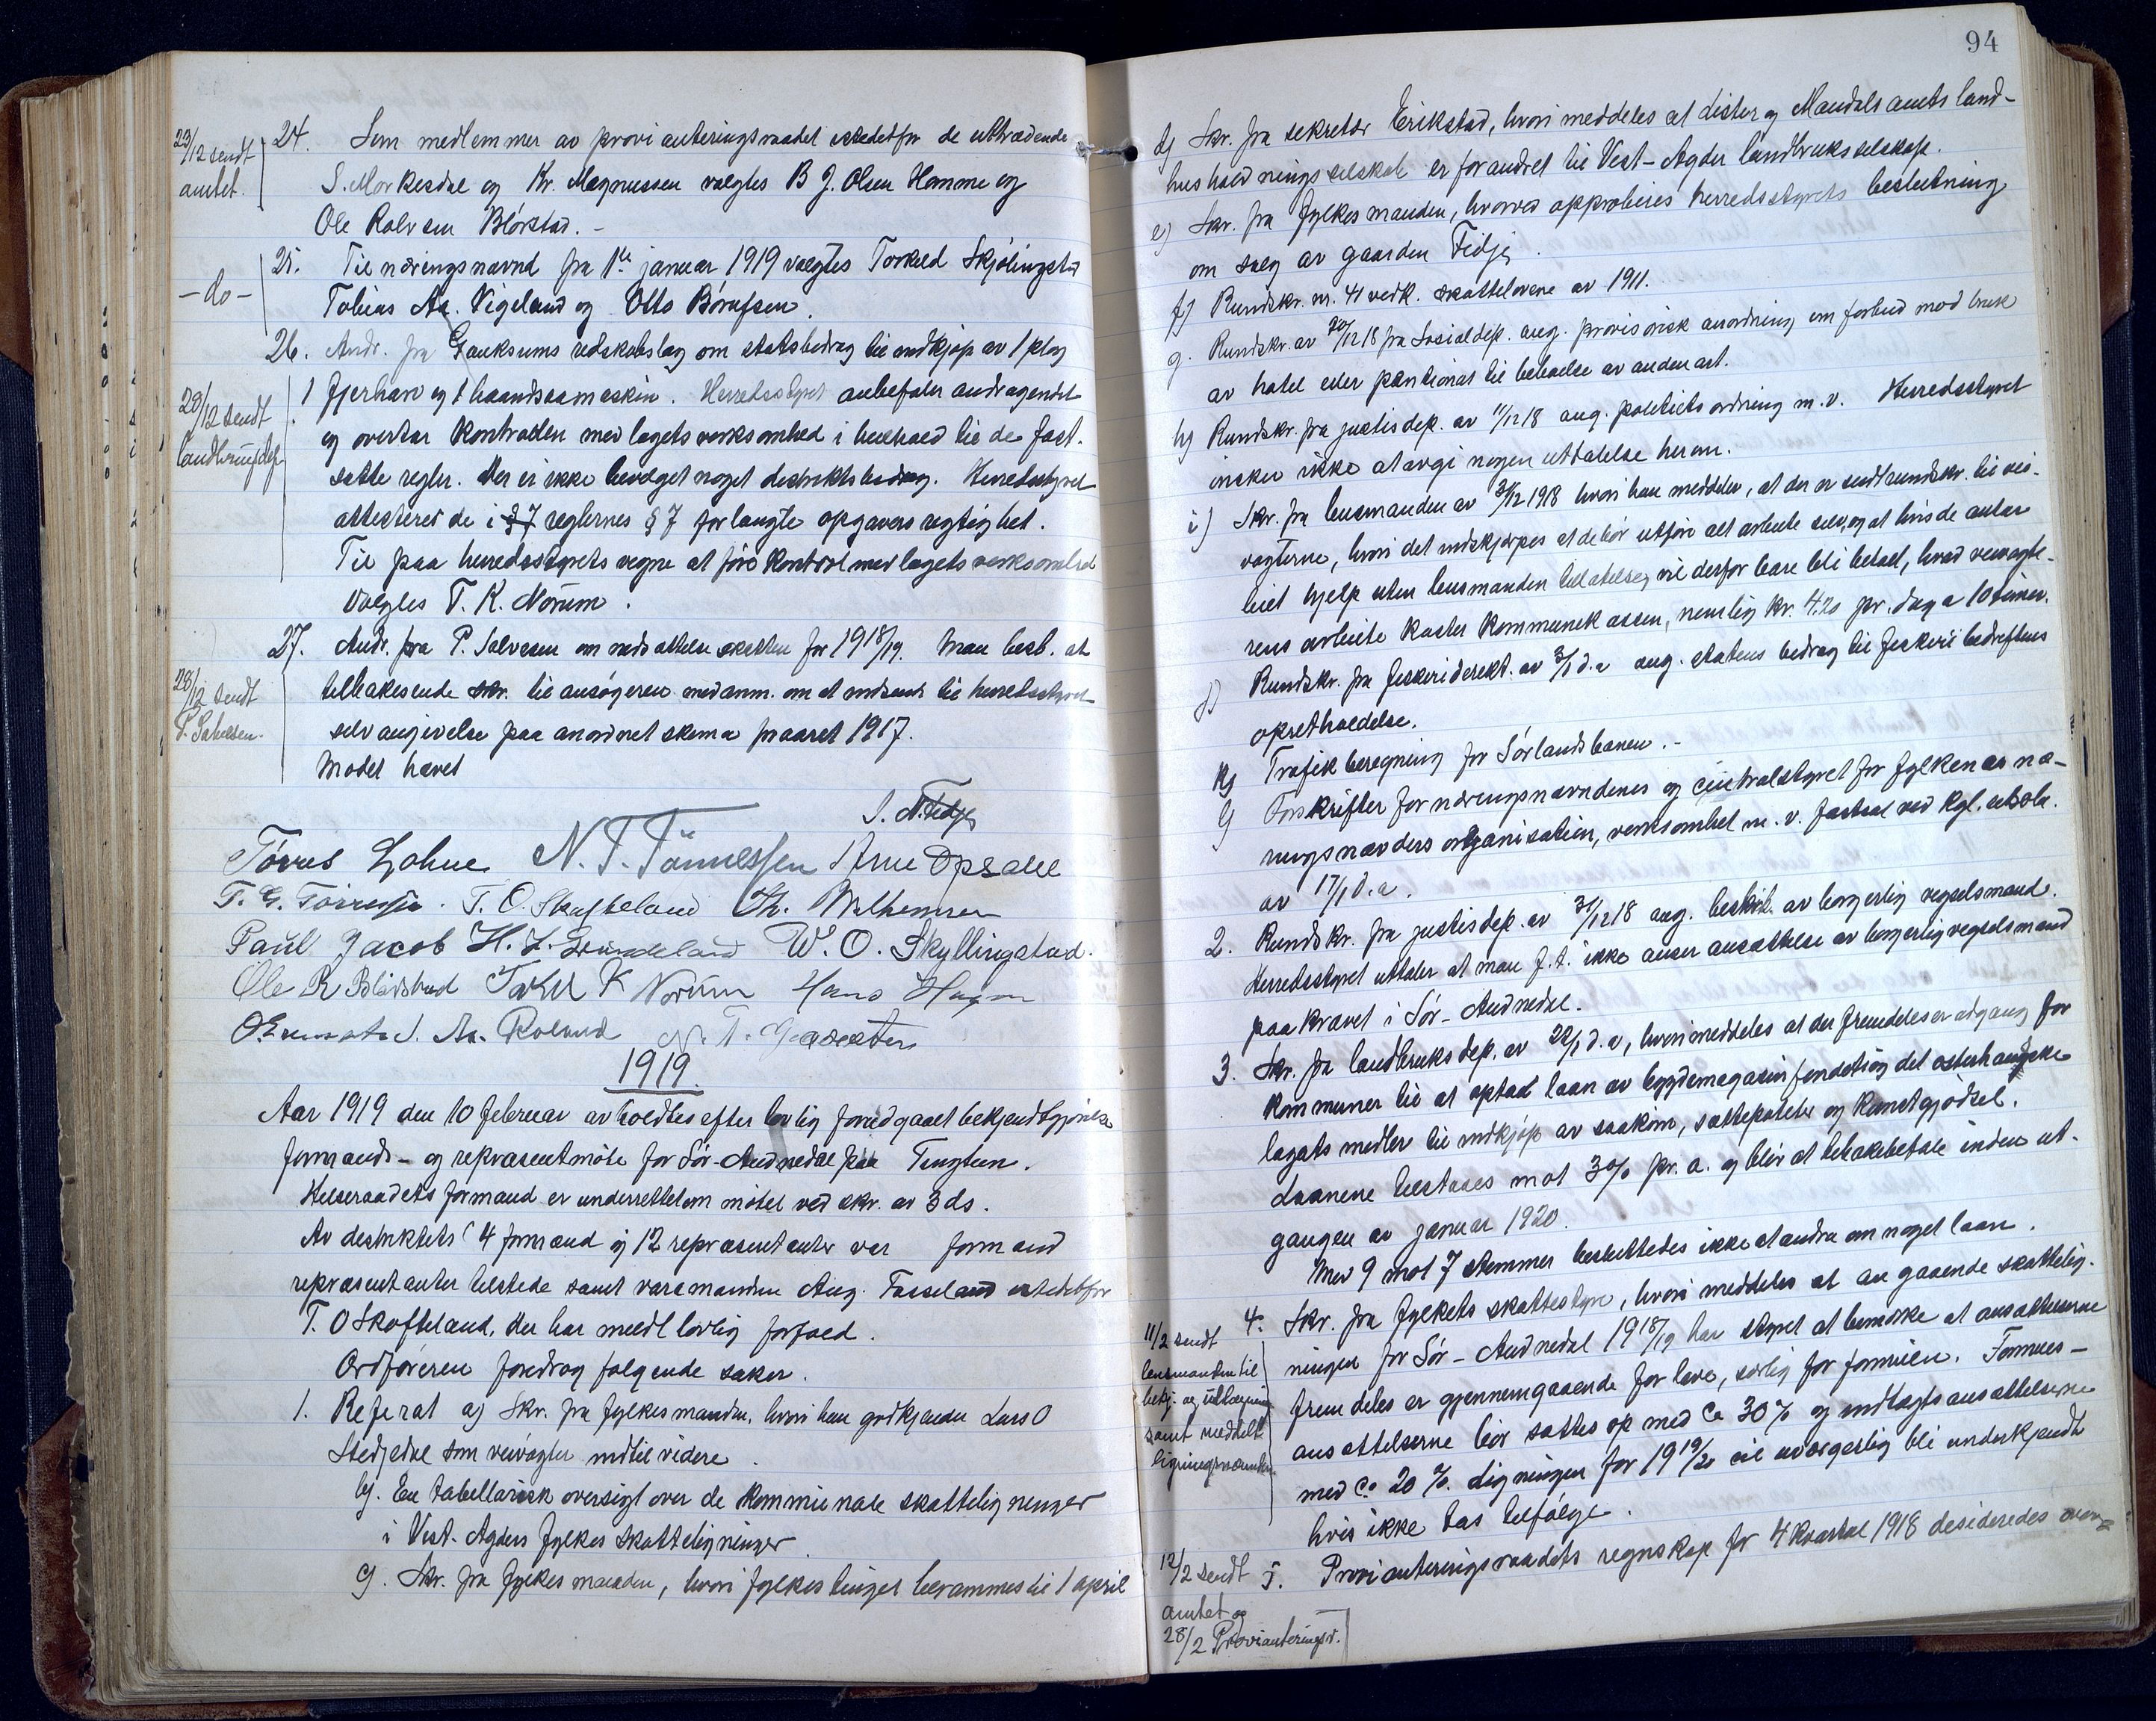 23/12 sendt
amtet.
24. Som medlemmer av provianteringsraadet istedetfor de uttrædende
S. Morkesdal og Kr. Magnussen valgtes B J. Olsen Homme og
Ole Rolvsen Blörstad. -
- do -
25. Til næringsnævnd fra 1ste januar 1919 valgtes Torkeld Skjölingstad
Tobias Aa. Vigeland og Otto Börufsen.
26. Andr. fra Gauksums redskabslag om statsbidrag til indkjøp av 1 plog
28/12 sendt
landbruksdep
1 fjerharv og 1 haandsaamaskin. Herredsstyret anbefaler andragendet
og overtar kontrollen med lagets verksomhed i henhold til de fast-
satte regler. Der er ikke bevilget noget distriktsbidrag. Herredsstyret
attesterer de i § 7 reglernes § 7 forlangte opgavers regtighet.
Til paa herredsstyrets vegne at före kontrol med lagets verksomhed
valgtes T. K. Nörum.
27. Andr. fra P. Salvesen om nedsættelse skatten for 1918/19. Man besl. at
28/12 sendt
P. Salvesen.
tilbakesende skr. til ansögeren med anm. om at indsende til herredsstyret
selvangivelse paa anordnet skema for aaret 1917.
Mødet hævet
S. N. Fidje
Törres Lohne N. T. Tönnessen Arne Opsahl
T. G. Törressen. T. O. Skofteland Th. Wilhemsen
Paul Jacob H. L. Svindeland W. O. Skyllingstad.
Ole R Blörstad Torkel K Norum Hans Hagen
O. S. Aa. Rolund N. T.
1919
Aar 1919 den 10 februar avholdtes efter lovlig forutgaaet bekjendtgjørelse
formands- og repræsentmöte for Sör-Audnedal paa Tingtun.
Helseraadets formand er underrettet om mötet ved skr. av 3 ds.
Av distriktets 4 formænd og 12 repræsentanter var formænd
repræsentanter tilstede samt varamanden Aug. Fasseland istedetfor
T. O Skofteland, der har meldt lovlig forfald.
Ordföreren foredrog fölgende saker.
1. Referat a) Skr. fra fylkesmanden, hvori han godkjender Lars O
Stedjedal som veivogter indtil videre.
b). En tabellarisk oversigt over de kommunale skattelignenger
i Vest-Agders fylkes skatteligninger.
c). Skr. fra fylkesmanden, hvori fylkestinget berammes til 1 april
94
d) Skr. fra sekretær Erikstad, hvori meddeles at Lister og Mandals amts land-
husholdningsselskab er forandret til Vest-Agder landbruksselskap.
e) Skr. fra fylkesmanden, hvorved approberes herredsstyrets beslutning
om salg av gaarden Fidje.
f) Rundskr. nr. 41 vedk. skattelovene av 1911.
g. Rundskr. av 20/12 18 fra Socialdep. ang. provisorisk anordning om forbud mod bruk
av hotel eller pantionat til beboelse av anden art.
h) Rundskr. fra justisdep. av 11/12 18 ang. politiets ordning m.v. Herredsstyret
önsker ikke at avgi nogen uttalelse herom.
i) Skr. fra lensmanden av 31/12 1918 hvori han meddeler, at der er sendt rundskr. til vei-
vogterne, hvori det indskjærpes at de bör utföre alt arbeide selv, og at hvis de antar
leiet hjelp uten lensmanden tillatelse, vil derfor bare bli betalt, hvad veivogte-
rens arbeide koster kommunekassen, nemlig kr. 4.20 pr. dag a 10 timer.
j) Rundskr. fra fiskeridirekt. av 3/1 d.a ang. statens bidrag til fiskeribedriftens
opretholdelse.
k) Trafikberegning for Sörlandsbanen. -
l) Forskrifter for næringsnævndenes og centralstyret for fylkenes næ-
ringsnævnders organisation, verksomhet m. v. fastsat ved kgl. resol.
av 17/1 d.a.
2. Rundskr. fra justisdep. av 31/12 18 ang. beskik. av borgerlig vigselsmand.
Herredsstyret uttaler at man f. t. ikke anser ansættelse av borgerlig vigselsmand
paakrævet i Sör-Audnedal.
3. Skr. fra landbruksdep. av 22/1 d.a, hvori meddeles at der fremdeles er adgang for
kommuner til at optad laan av bygdemagasinfondet og det osterhaugske
legats midler til indkjøp av saakorn, sættepoteter og kunstgjödsel.
Laanene tilstaaes mot 3% pr. a. og blir at tilbakebetale inden ut-
gangen av januar 1920.
Med 9 mot 7 stemmer besluttedes ikke at andra om noget laan.
4. Skr. fra fylkets skattestyre, hvori meddeles at an gaaende skattelig-
11/2 sendt
lensmanden til
bekj. og utlægning
samt meddelt
ligningsnævnden
ningen for Sör-Audnedal 1918/19 har styret at bemerke at ansættelserne
fremdeles er gjennemgaaende for lave, særlig for formuen. Formues-
ansættelserne bör sættes op med ca 30% og indtægtsansættelserne
med ca 20 %. Ligningen for 1919/20 vil uvægerlig bli underkjendt
hvis ikke tas tilfölge.
12/2 sendt
amtet og
28/2 Provianteringsr.
5. Provianteringsraadets regnskap for 4 kvartal 1918 desideredes